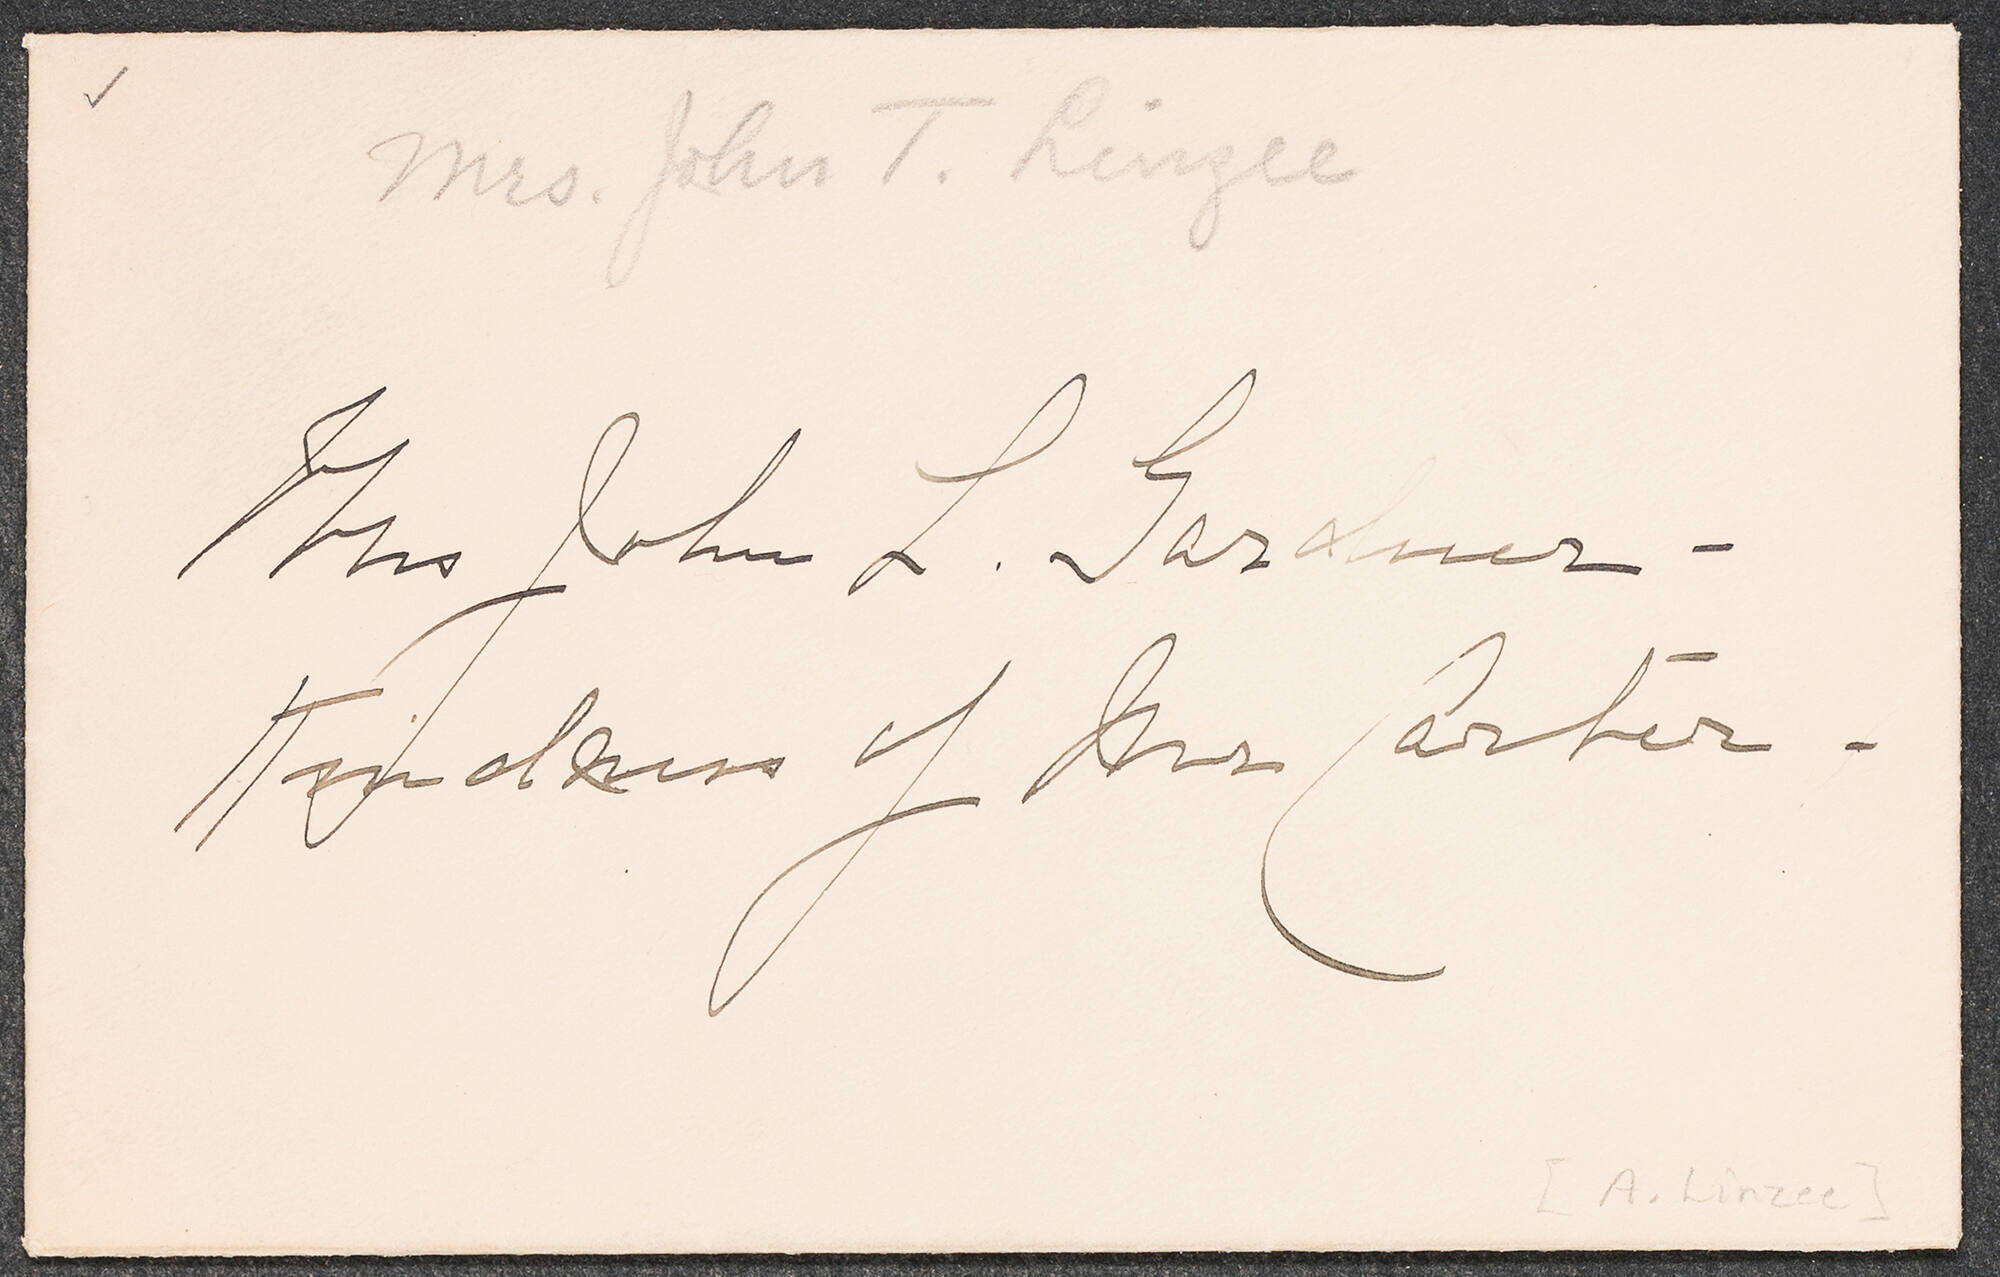 Mrs. John T. Linzee
Mrs John L. Gardner -
Kindness of Mr Carter -
[A. Linzee]